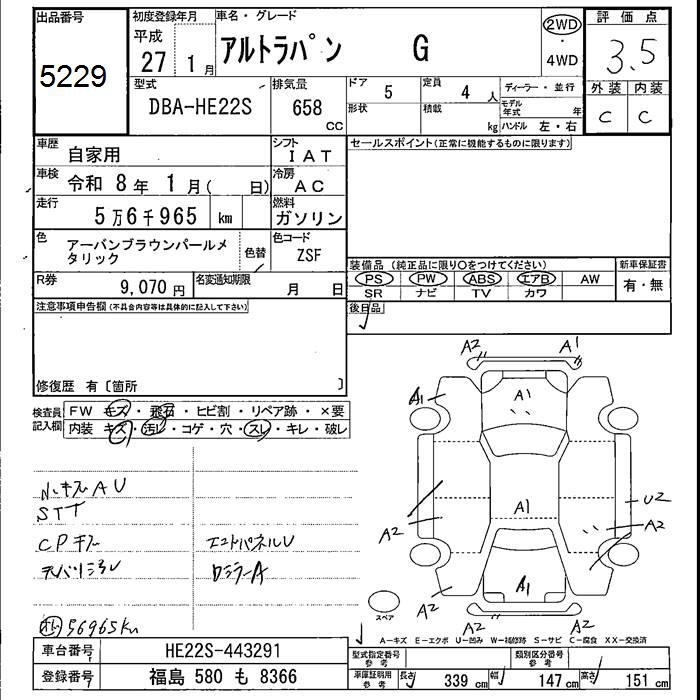 出品番号 初度登録年月 車名・グレード 評価点
5229 平成 27 1月 アルトラパン G 2WD・4WD 3.5
型式 排気量 ドア 5 定員 4人 ディーラー・並行 外装 内装
DBA-HE22S 658cc 形状 積載 kg モデル年式 年 ハンドル 左・右 C C
車歴 自家用 シフト IAT セールスポイント(正常に機能するものに限ります)
車検 令和 8年 1月( 日) 冷房 AC
走行 5万6千965 km 燃料 ガソリン
色 アーバンブラウンパールメタリック 色替 色コード ZSF
装備品(純正品に限り〇をつけてください) 新車保証書
R券 9,070円 名変通知期限 月 日 PS PW ABS エアB AW 有・無
SR ナビ TV カワ
注意事項申告欄(不具合内容等は具体的に記入して下さい) 後日品
修復歴 有〔箇所 〕
検査員記入欄 FW キズ・飛石・ヒビ割・リペア跡・×要
内装 キズ・汚レ・コゲ・穴・スレ・キレ・破レ
A2 A1
A1 A1
A1
A2 U2
A2
A1
A2 A2
A2 A2
スペア
STT
56965km
A-キズ E-エクボ U-凹み W-補修跡 S-サビ C-腐食 XX-交換済
車台番号 HE22S-443291 型式指定番号 参考 類別区分番号 参考
登録番号 福島 580 も 8366 車庫証明用 参考 長さ 339cm 幅 147cm 高さ 151cm